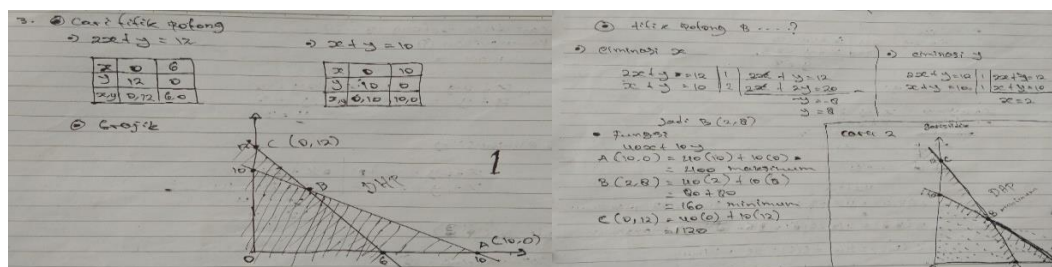 3. Cari titik potong
⇒ 2x + y = 12
⇒ x + y = 10
x 0 6
y 12 0
x,y 0,12 6,0
x 0 10
y 10 0
x,y 0,10 10,0
Grafik
12 C (0,12)
10
B
DHP
1
A (10,0)
0 6 10
titik potong B ....?
⇒ eliminasi x
2x + y = 12 | 1 | 2x + y = 12
x + y = 10 | 2 | 2x + 2y = 20
-y = -8
y = 8
Jadi B (2,8)
⇒ eminasi y
2x + y = 12 | 1 | 2x + y = 12
x + y = 10 | 1 | x + y = 10
x = 2
• Fungsi
40x + 10y
A (10,0) = 40 (10) + 10 (0)
= 400 maksimum
B (2,8) = 40 (2) + 10 (8)
= 80 + 80
= 160 minimum
C (0,12) = 40 (0) + 10 (12)
= 120
Cara 2
C
DHP
B
minimum